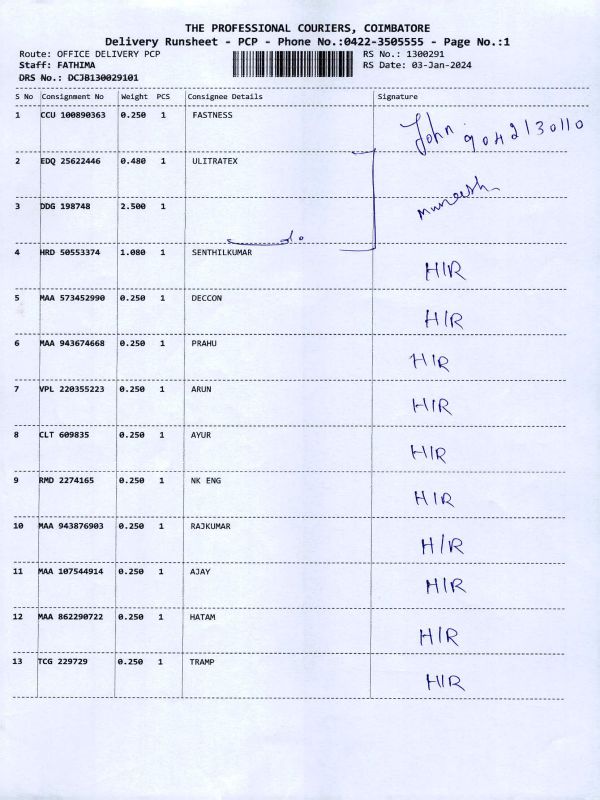 THE PROFESSIONAL COURIERS, COIMBATORE
Delivery Runsheet - PCP - Phone No.:0422-3505555 - Page No.:1
Route: OFFICE DELIVERY PCP RS No.: 1300291
Staff: FATHIMA RS Date: 03-Jan-2024
DRS No.: DCJB130029101
S No Consignment No Weight PCS Consignee Details Signature
1 CCU 100890363 0.250 1 FASTNESS John 9042130110
2 EDQ 25622446 0.480 1 ULITRATEX
3 DDG 198748 2.500 1 Muneesh
4 HRD 50553374 1.080 1 SENTHILKUMAR H/R
5 MAA 573452990 0.250 1 DECCON H/R
6 MAA 943674668 0.250 1 PRAHU H/R
7 VPL 220355223 0.250 1 ARUN H/R
8 CLT 609835 0.250 1 AYUR H/R
9 RMD 2274165 0.250 1 NK ENG H/R
10 MAA 943876903 0.250 1 RAJKUMAR H/R
11 MAA 107544914 0.250 1 AJAY H/R
12 MAA 862290722 0.250 1 HATAM H/R
13 TCG 229729 0.250 1 TRAMP H/R